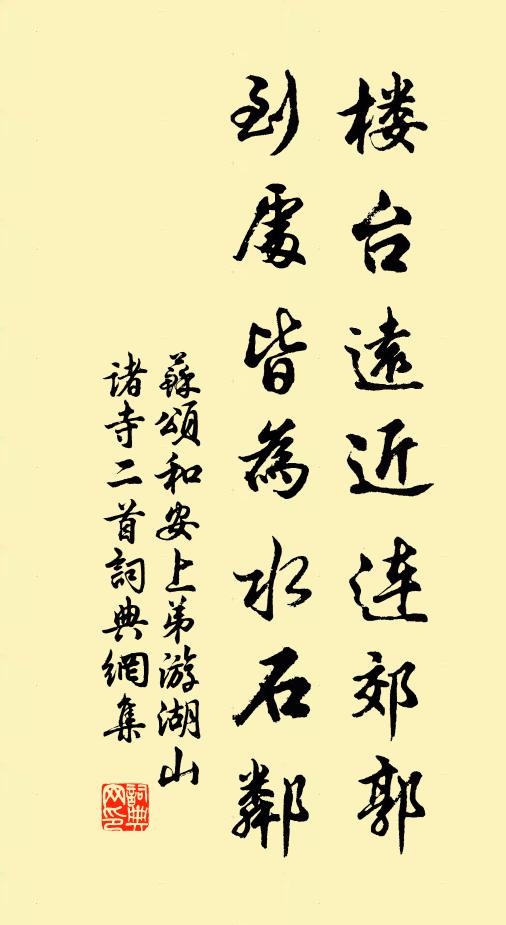 楼台遠近连郊郭
到處皆為水石鄰
蘇頌和安上弟游湖山
诸寺二首詞典網集
詞典网印